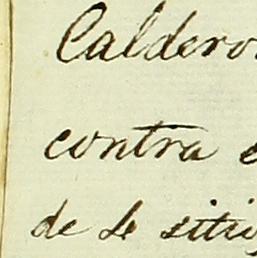 Caldero
contra
de se siti